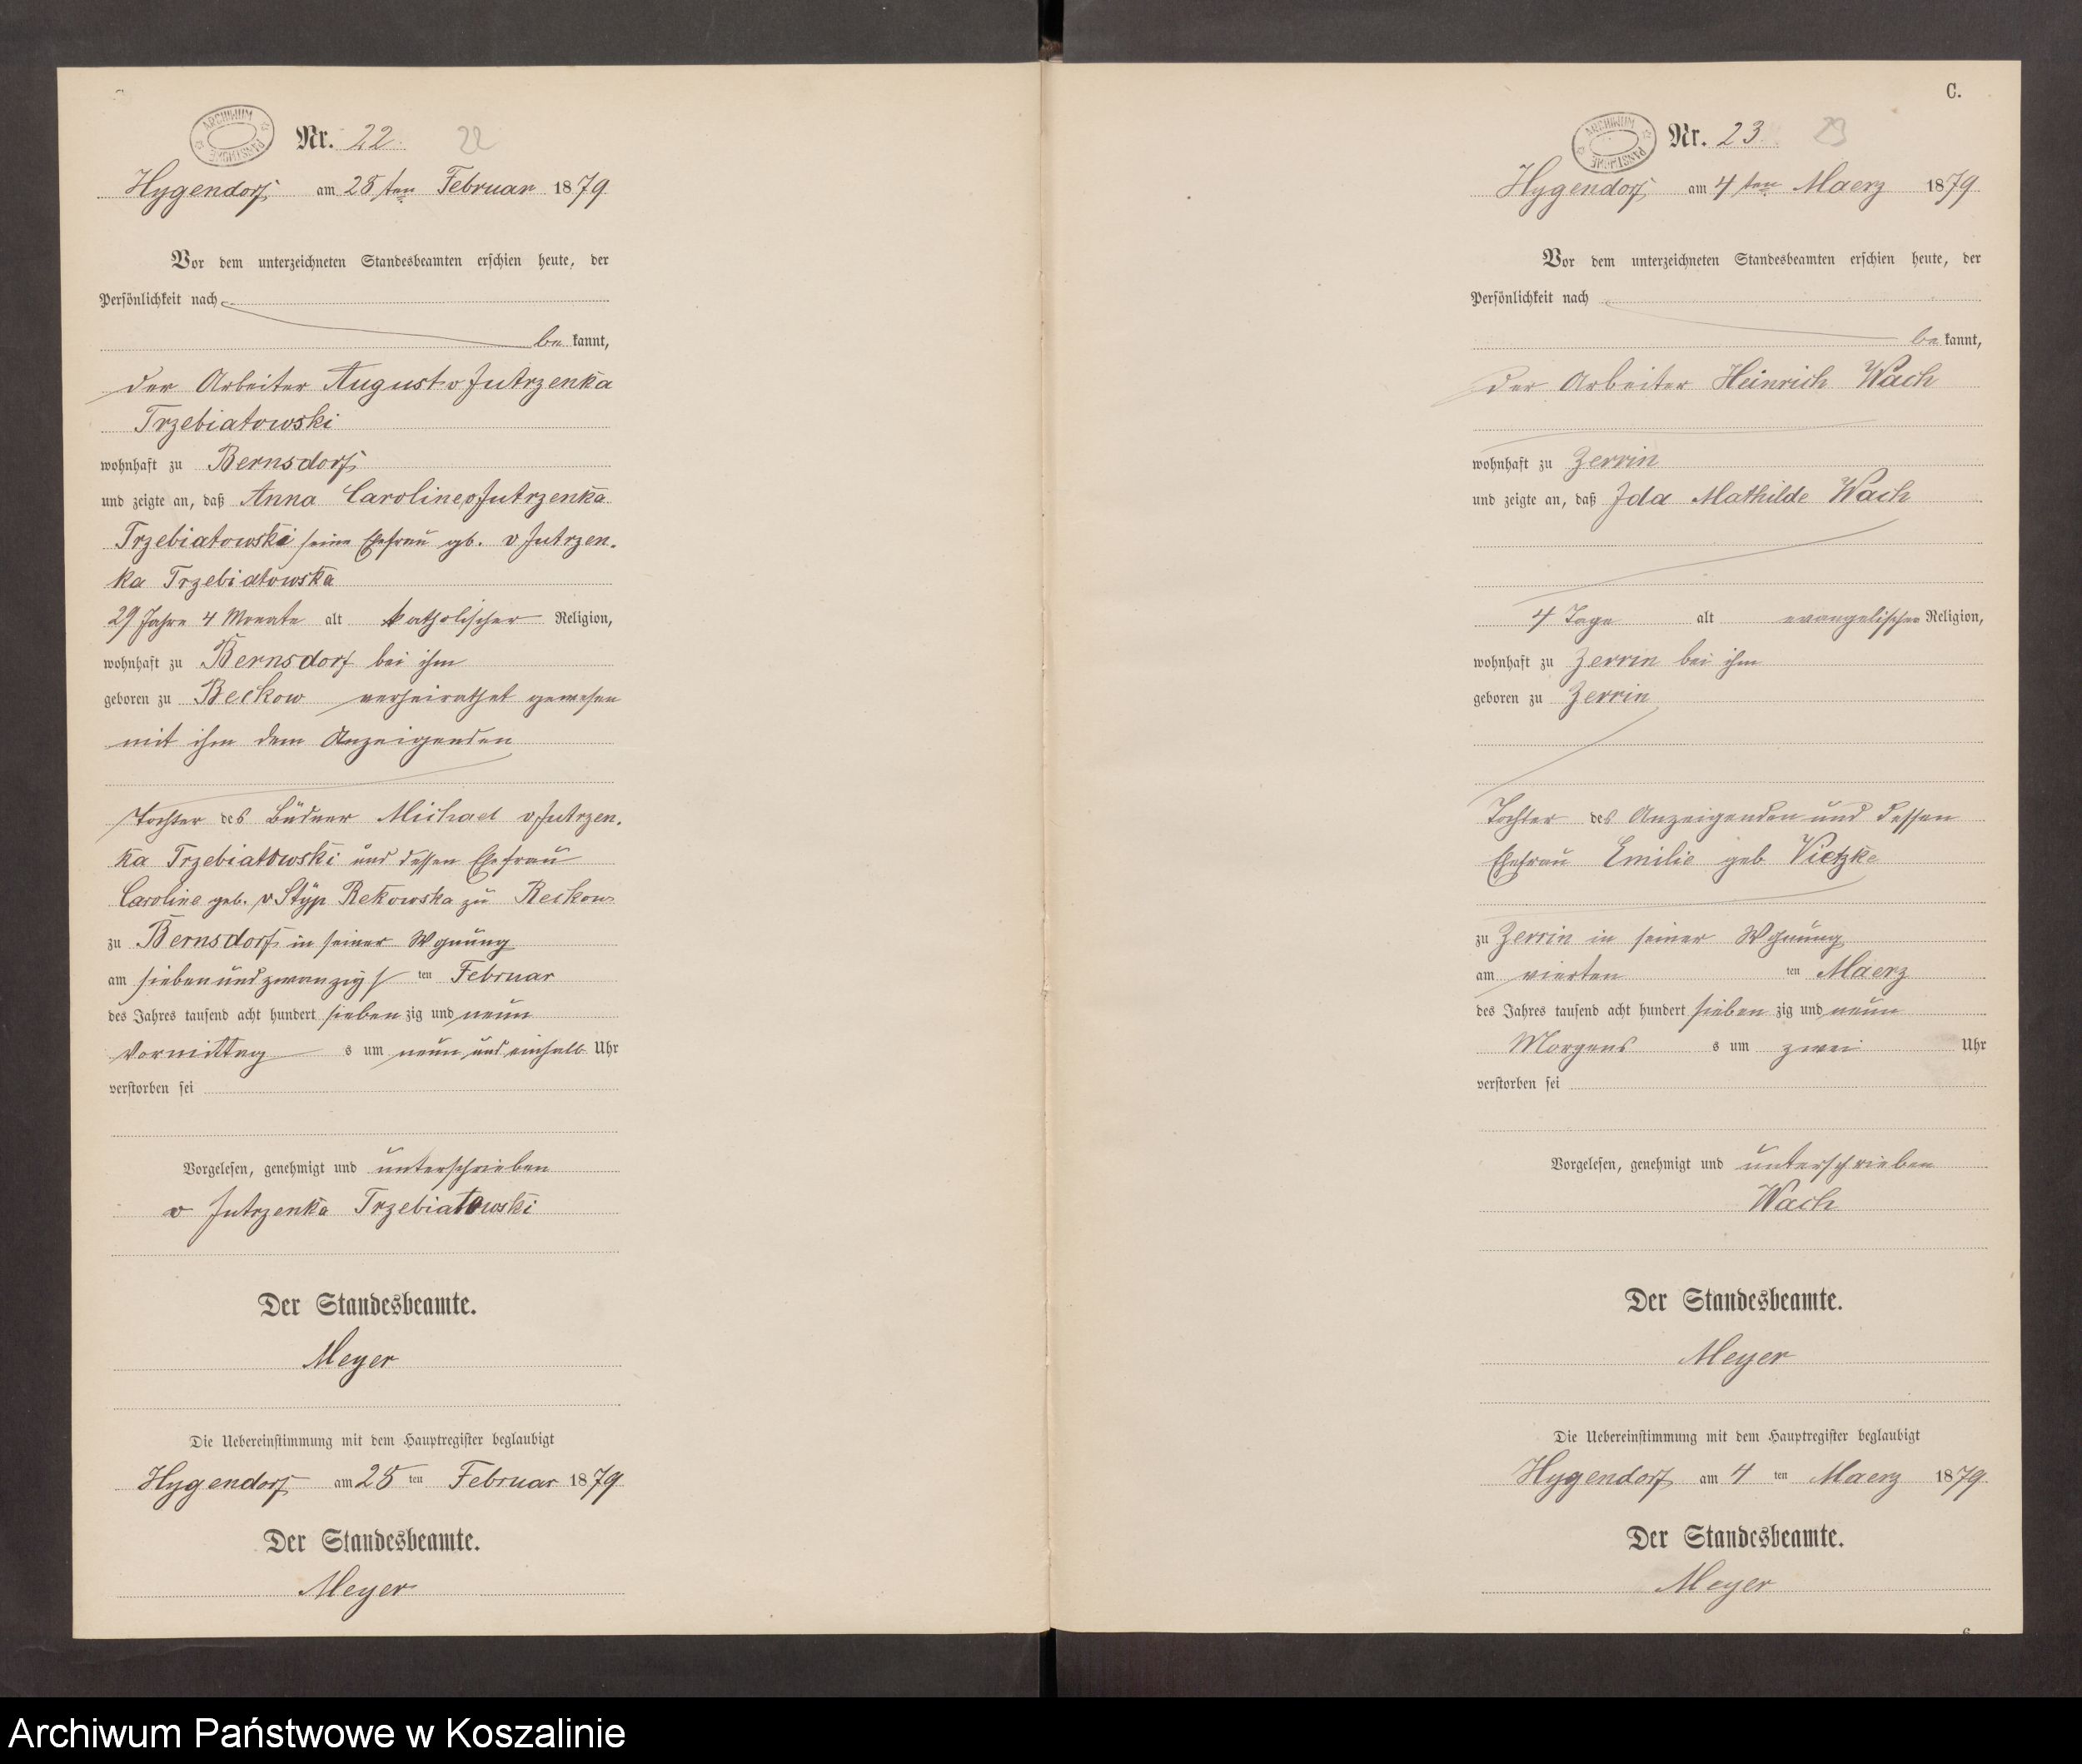 ARCHIWUM PAŃSTWOWE
Nr. 22 22
Hygendorf am 28 ten Februar 1879
Vor dem unterzeichneten Standesbeamten erschien heute, der
Persönlichkeit nach
be kannt,
der Arbeiter August v Jutrzenka
Trzebiatowski
wohnhaft zu Bernsdorf
und zeigte an, daß Anna Caroline v Jutrzenka
Trzebiatowski seine Ehefrau gb. v Jutrzen-
ka Trzebiatowska
29 Jahre 4 Monate alt katholischer Religion,
wohnhaft zu Bernsdorf bei ihm
geboren zu Reckow verheirathet gewesen
mit ihm dem Anzeigenden
Tochter des Büdner Michael v Jutrzen-
ka Trzebiatowski und dessen Ehefrau
Caroline geb. v Styp Rekowska zu Reckow
zu Bernsdorf in seiner Wohnung
am siebenundzwanzigs ten Februar
des Jahres tausend acht hundert sieben zig und neun
Vormittag s um neun und einhalb Uhr
verstorben sei
Vorgelesen, genehmigt und unterschrieben
v Jutrzenka Trzebiatowski
Der Standesbeamte.
Meyer
Die Uebereinstimmung mit dem Hauptregister beglaubigt
Hygendorf am 28 ten Februar 1879
Der Standesbeamte.
Meyer
C.
ARCHIWUM PAŃSTWOWE
Nr. 23 23
Hygendorf am 4 ten Maerz 1879
Vor dem unterzeichneten Standesbeamten erschien heute, der
Persönlichkeit nach
be kannt,
der Arbeiter Heinrich Wach
wohnhaft zu Zerrin
und zeigte an, daß Ida Mathilde Wach
4 Tage alt evangelischer Religion,
wohnhaft zu Zerrin bei ihm
geboren zu Zerrin
Tochter des Anzeigenden und dessen
Ehefrau Emilie geb Vietzke
zu Zerrin in seiner Wohnung
am vierten ten Maerz
des Jahres tausend acht hundert sieben zig und neun
Morgens s um zwei Uhr
verstorben sei
Vorgelesen, genehmigt und unterschrieben
Wach
Der Standesbeamte.
Meyer
Die Uebereinstimmung mit dem Hauptregister beglaubigt
Hygendorf am 4 ten Maerz 1879
Der Standesbeamte.
Meyer
Archiwum Państwowe w Koszalinie